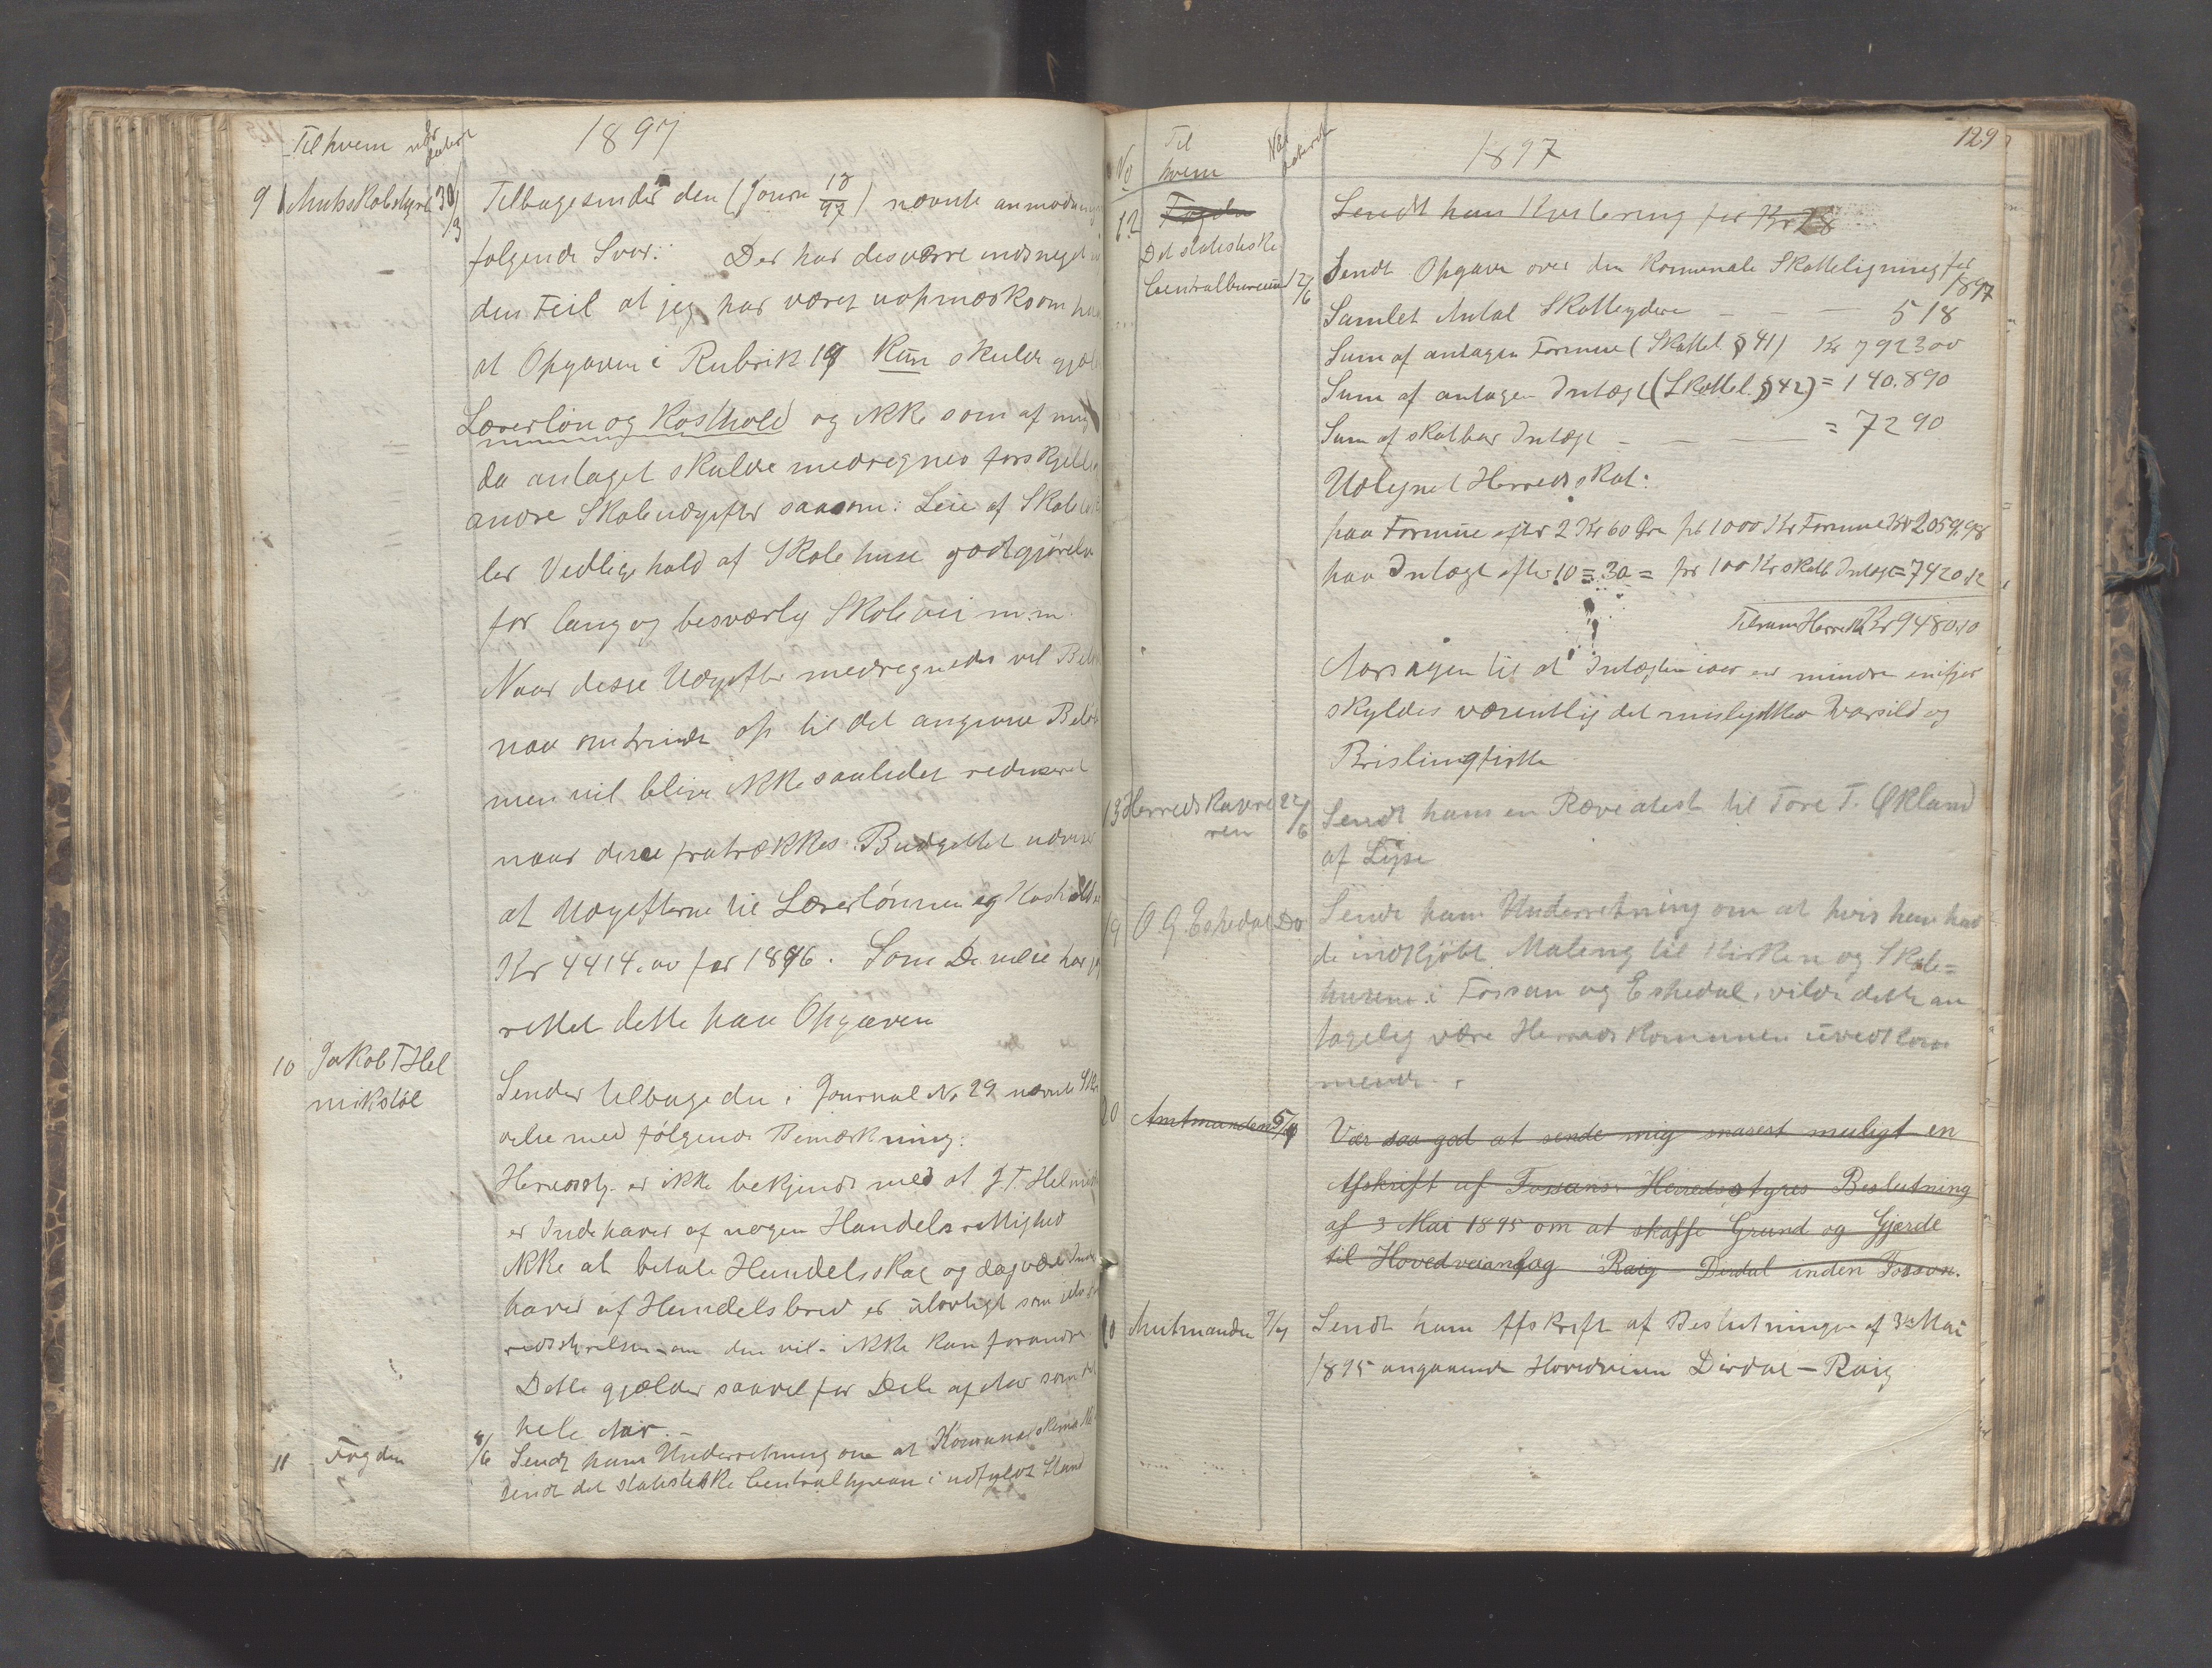 Til hvem naar datert
1897
9 Amtsskolestyret 30/3 Tilbagesender den (Journ 18/97) nævnte anmodning
følgende Svar: Der har desværre indsneget
den Feil at jeg har været uopmærksom paa
at Opgaven i Rubrik 19 kun skulde gjælde
Lærerløn og Kosthold og ikke som af mig
da antaget skulde medregnes forskjellige
andre Skoleudgifter saasom: Leie af Skole
ler Vedligehold af Skolehuse godtgjørelse
for lang og besværlig Skolevei m.m.
Naar disse Udgifter medregnedes vil Belø
naa omtrent op til det angivne Beløb
men vil blive ikke saalidet reduseret
naar disse fratrækkes. Budgettet udviser
at Udgifterne til Lærerlønnen og Kosthold
Kr 4414.00 for 1896. Som De
rettet dette paa Opgaven
10 Jakob T Hel
mikstøl
Sender tilbage den i Journal No 29 nævnte Skri
velse med følgende Bemærkning:
Herredsst. er ikke bekjendt med at J.T. Helmik
er Indehaver af nogen Handelsrettighed
ikke at betale Handelsskat og dog være Inde
haver af Handelsbrev er ulovligt som
redsstyrelsen om den vil - ikke kan forandre
Dette gjælder saavel for Dele af Aar som
hele Aar.-
11 Fogden 8/6 Sendt ham Underretning om at Komuneskema
sendt det statistiske Centralbyreau i udfyldt Stand
129
No Til hvem Naar datert
1897
12 Fogden Sendt ham Kvitering for Kr 28
Det statistiske
Centralbureau 12/6 Sendt Opgave over den Komunale Skatteligning for 1897
Samlet Antal Skatteydere - - - 518
Sum af antagen Formue (Skattel. § 41) Kr 792300
Sum af antagen Indtægt (Skattel. § 42) = 140.890
Sum af skatbar Indtægt - - - = 7290
Udlignet Herredsskat:
paa Formue efter 2 Kr 60 Øre pr 1000 Kr Formue Kr 2059,98
paa Indtægt efter 10 = 30 = pr 100 Kr skatb Indtægt = 7420.12
Tilsam Herredsk Kr 9480.10
Aarsagen til at Indtægten iaar er mindre enifjor
skyldes væsentlig det mislykkede Vaarsild og
Brislingfiske
13 Herredskasere
ren 22/6 Sendt ham en Ræveatest til Tore T. Økland
af Lyse
19 O. G. Eskedal Do Sendt ham Underretning om at hvis han hav
de indkjøbt Maling til Kirken og Skole=
husene i Fossan og Eskedal, vilde dette an
tagelig være Herredskommunen uvedkom
mende.
20 Amtmanden 5/7 Vær saa god at sende mig snarest muligt en
Afskrift af Fossans Herredsstyres Beslutning
af 3 Mai 1895 om at skaffe Grund og Gjerde
til Hovedveianlæg Raig - Dirdal inden Fossan.
20 Amtmanden 7/7 Sendt ham Afskrift af Beslutningen af 3die Mai
1895 angaaende Hovedveien Dirdal - Raig